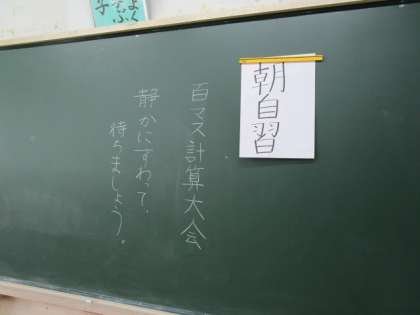 朝自習
百マス計算大会
静かにすわって、
待ちましょう。